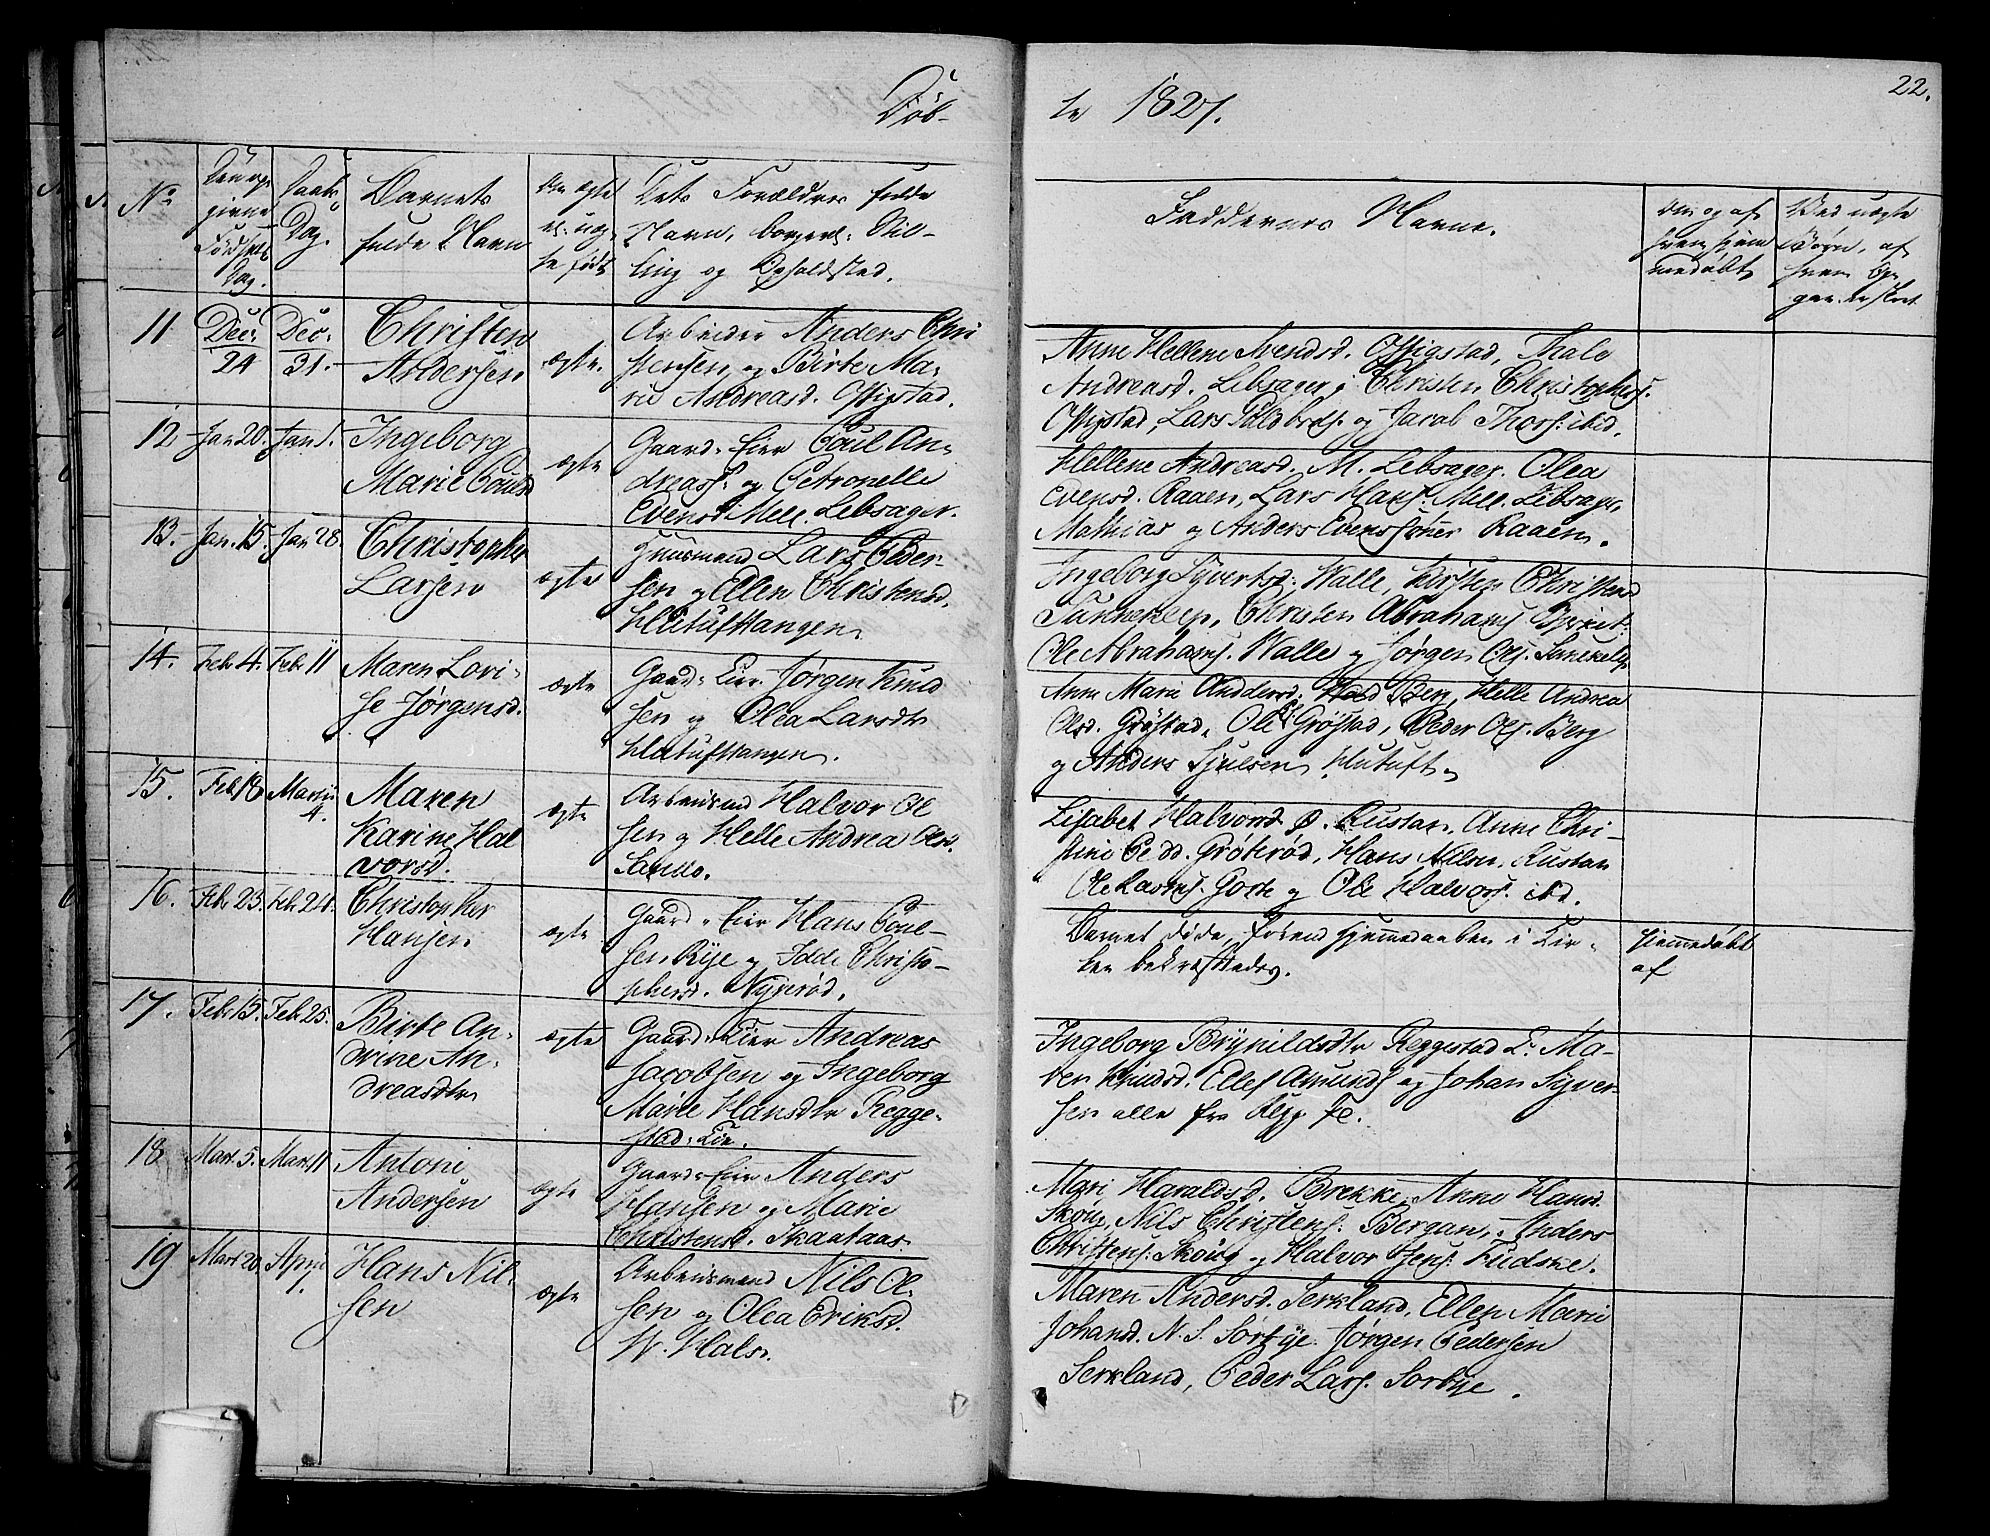 22.
Døb-
te 1827.
No
Den op
givne
Fødsels
Dag.
Daabs
Dag.
Barnets
fulde Navn
Om ægte
el: uæg
te født
Dets Forældres fulde
Navn, borgerl: Stil-
ling og Opholdsted.
Faddernes Navne.
Om og af
hvem hjem
medøbt
Ved uægte
Børn, af
hvem
11
Dec:
24
Dec:
31.
Christen
Andersen
ægte.
Arbeider Anders Chri
stensen og Birte Ma-
rie Andreasd. Offigstad.
Anne Hellene Svendsd. Offigstad, Thale
Andreasd. Lebsager, Christen Christophers.
Offigstad, Lars og Jacob Thors: ibid.
12
Jan 20.
Jan 1.
Ingeborg
Marie Pouls
ægte
Gaard-Eier Poul An-
dreass: og Petronelle
Evensd: Mell. Lebsager.
Hellene Andreasd. M. Lebsager. Olea
Evensd. Raaen, Lars Hans: Mell. Lebsager,
Mathias og Anders Evenssøner Raaen.
13.
Jan. 15.
Jan 28.
Christopher
Larsen
ægte
Huusmand Lars Peder-
sen og Ellen Christensd.
Hlitufttangen
Ingeborg Syvertsd: Walle, Kirsten Christensd
Sunnekleep, Christen Abrahams
Ole Abrahams. Walle og Jørgen Ols.
14.
Feb. 4.
Feb 11
Maren Lovi-
se Jørgensd.
ægte
Gaard-Eier Jørgen Knud
sen og Olea Larsdtr
Hlitufttangen.
Anne Marie Anddersd. Berg, Helle Andrea
Olsd. Grøstad, Ole Grøstad, Peder Ols. Berg
og Anders Hlituft
15.
Feb 18
Martii
4.
Maren
Karine Hal
vorsd.
ægte
Arbeidsmd Halvor Ol
sen og Helle Andrea Olsd.
Lisabet Halvorsd. Ø. Rustan, Anne Chri-
stine Grøterød, Hans Nilsen, Rustan
Ole og Ole Halvors. ibd.
16.
Feb. 23.
Feb. 24.
Christopher
Hansen
ægte
Gaard-Eier Hans Poul-
sen Rye og Idde Christo-
phersd. Nyerød.
Barnet døde, førend hjemmedaaben i Kir-
ken bekræftedes.
hjemmedøbt
af
17.
Feb. 15.
Feb. 25.
Birte An-
drine An-
dreasdtr
ægte
Gaard-Eier Andreas
Jacobsen og Ingeborg
Marie Hansdtr Regge-
stad
Ingeborg Brynildsdtr Reggestad Ma-
ren Knudsd. Ellef Amunds og Johan Syver-
sen alle fra
18
Mart 5.
Mart 11
Antoni
Andersen
ægte
Gaard-Eier Anders
Hansen og Marie
Christensd. Skaataas
Mari Haraldsd. Brekke, Anne Hansd.
Skoug, Nils Christens: Bergan, Anders
Christens: Skoug og Halvor
19
Mart 20.
April
1.
Hans Nil-
sen
ægte
Arbeidsmand Nils Ol-
sen og Olea Eriksd.
W. Hals.
Maren Andersd. Serkland, Ellen Marie
Johansd. N. S. Sorbye. Jørgen Pedersen
Serkland, Peder Lars. Sorbye.